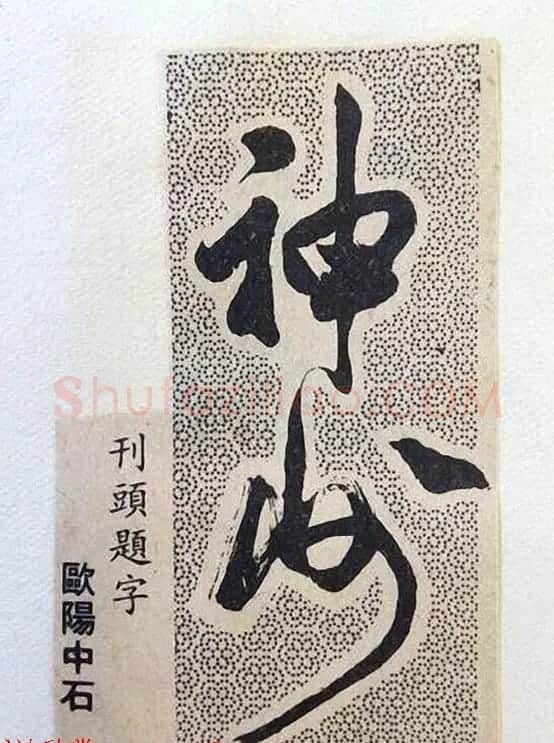 神
Shufaziliao.COM
刊頭題字
歐陽中石